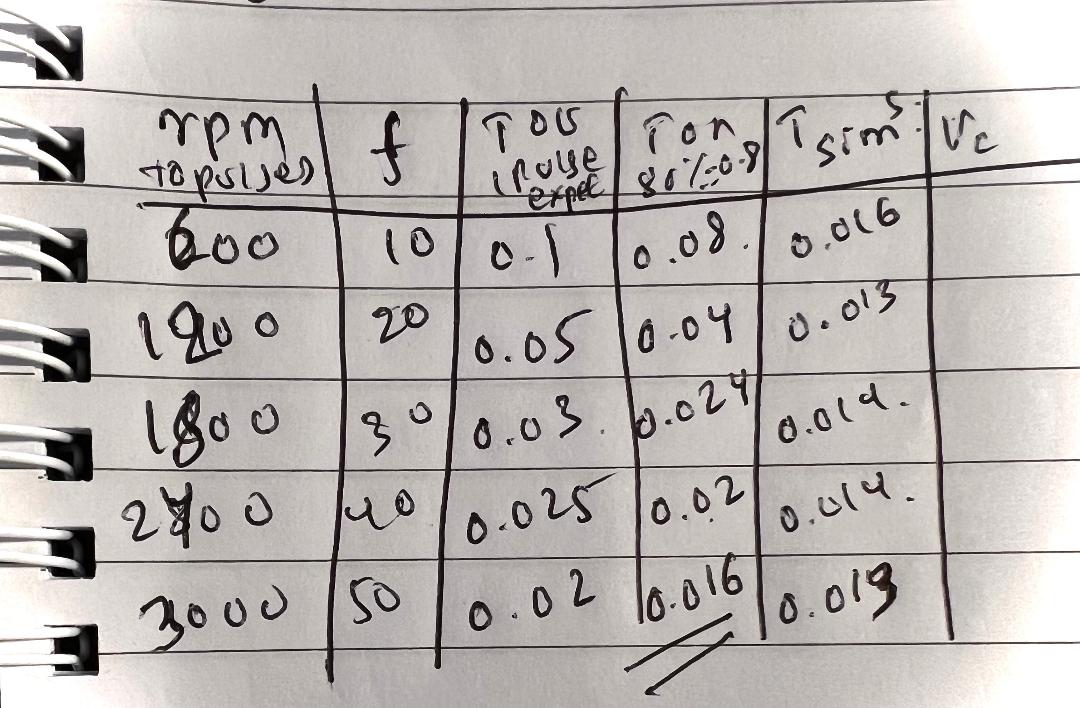 rpm to pulses f T ous pulse expet Ton 80%=0.8 Tsim s. Vc
600 10 0.1 0.08. 0.016
1200 20 0.05 0.04 0.013
1800 30 0.03. 0.024 0.014.
2400 40 0.025 0.02 0.014.
3000 50 0.02 0.016 0.013